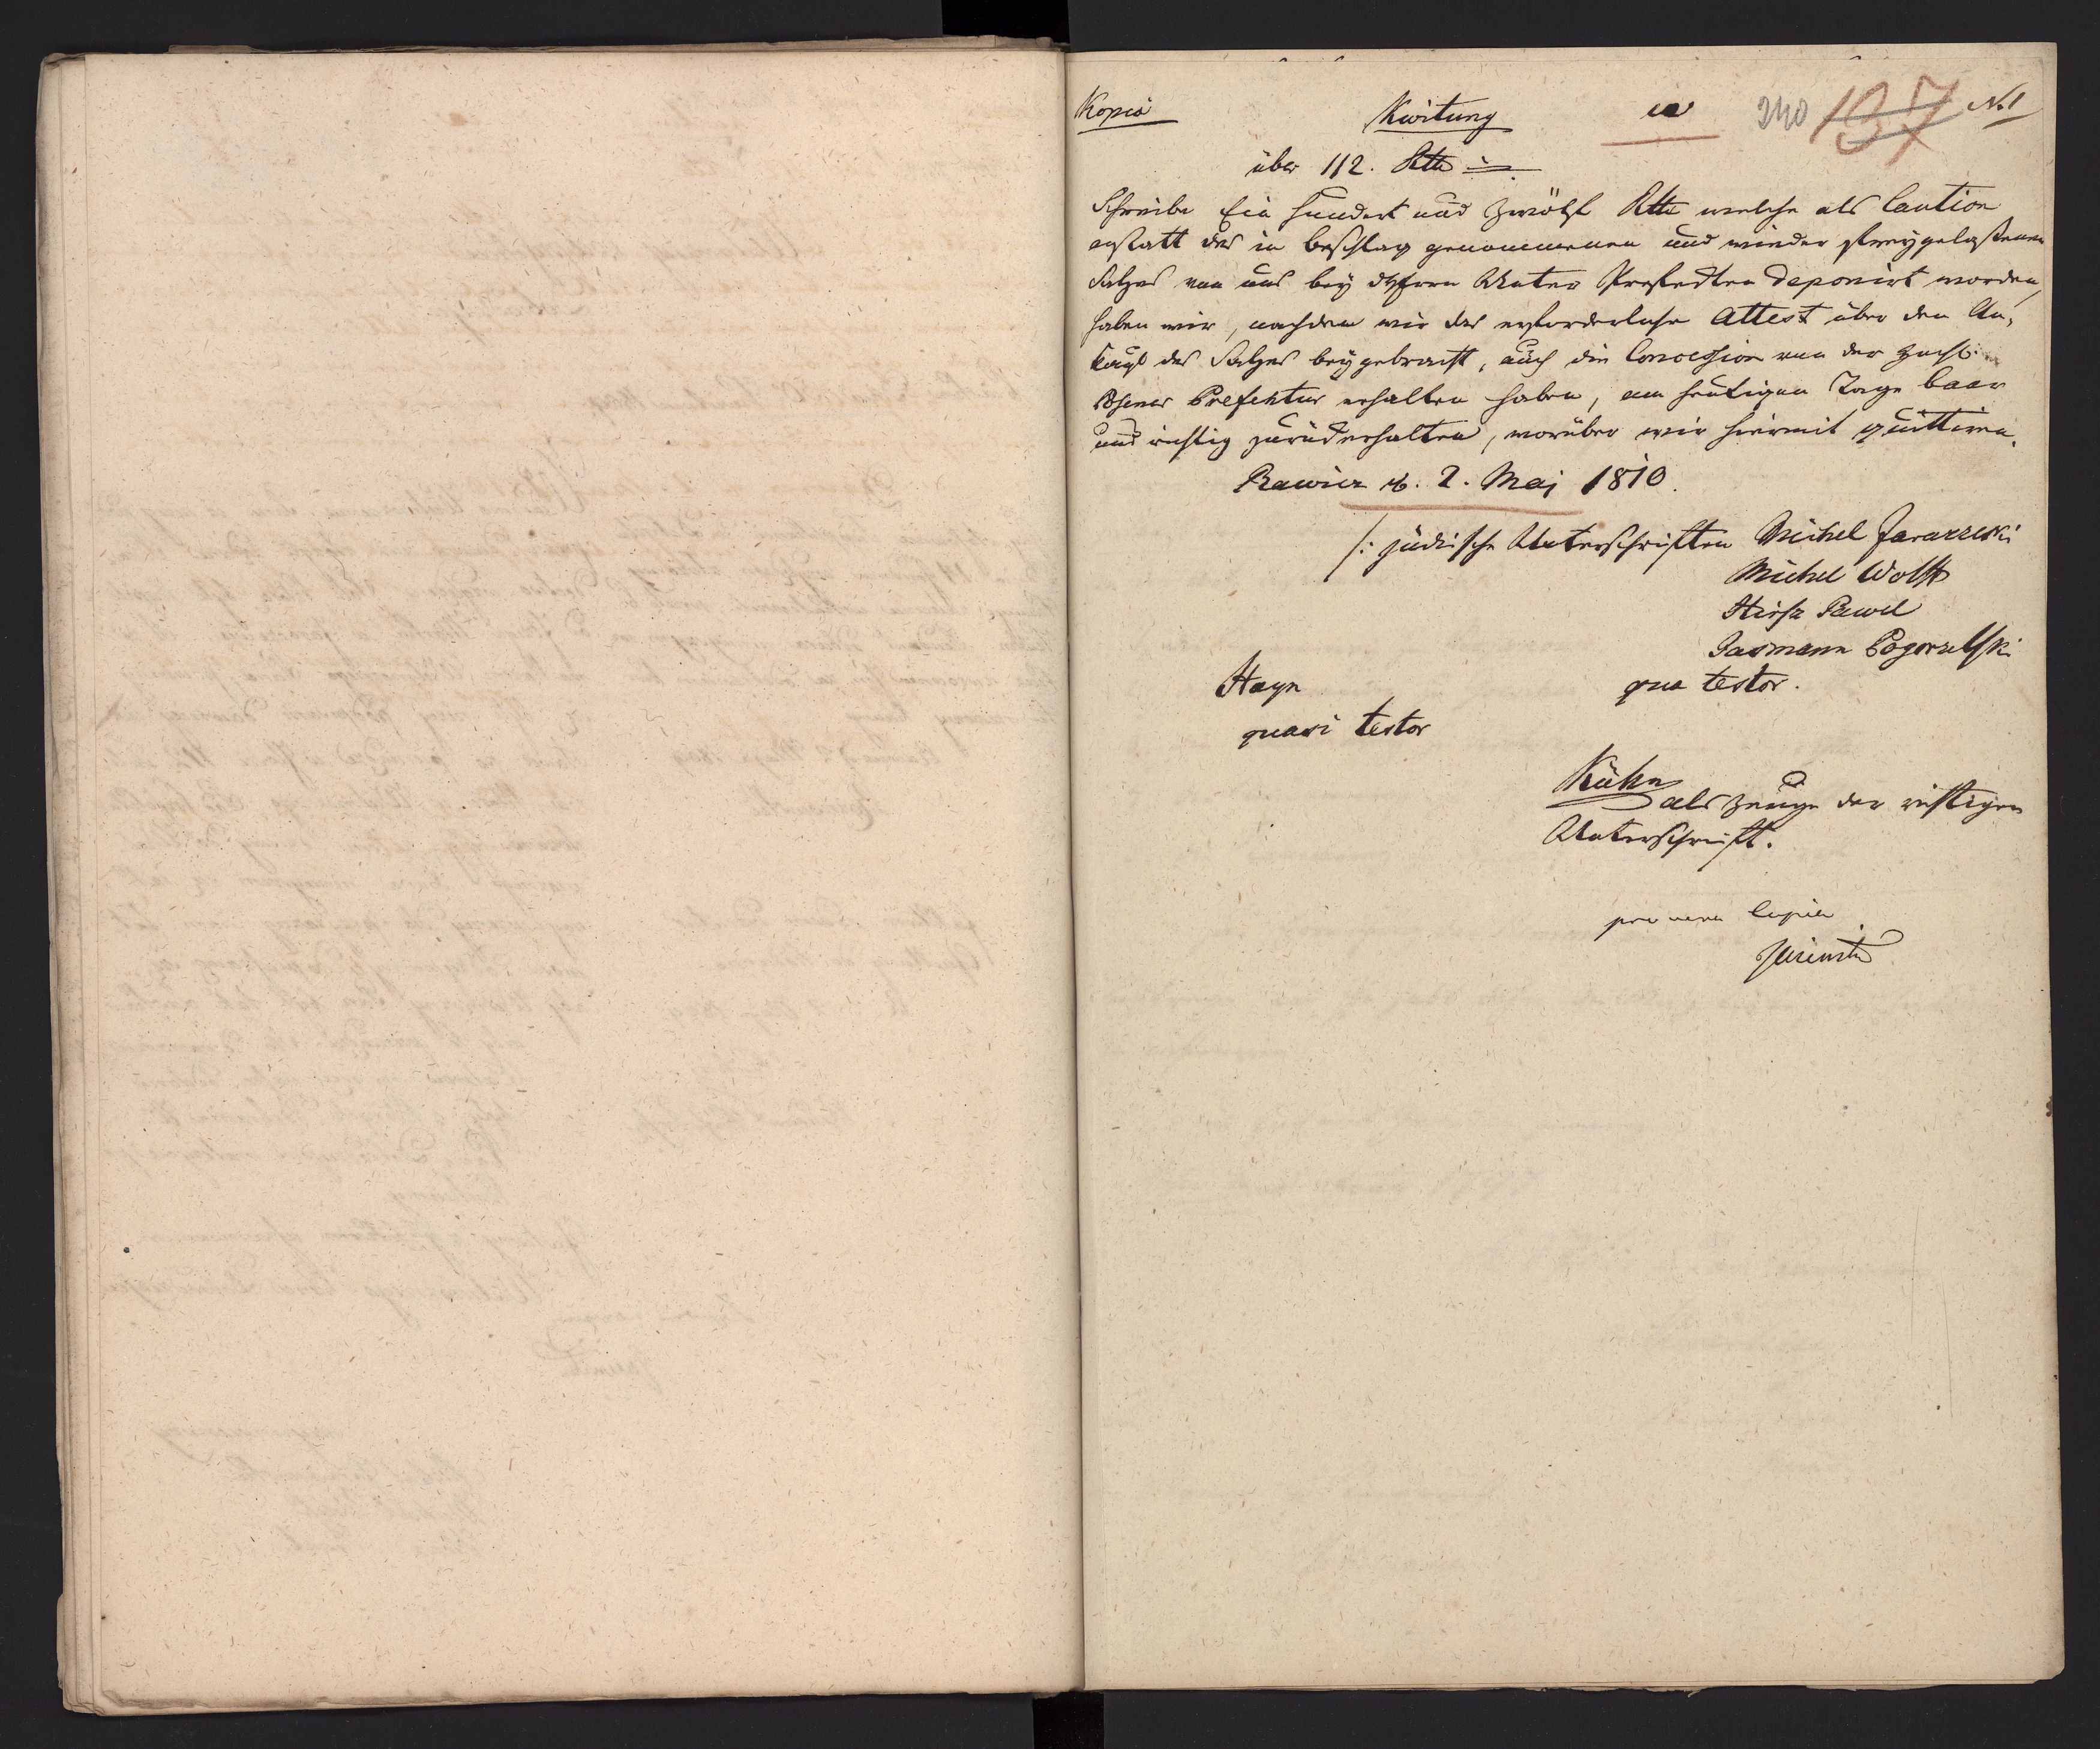 Kopia
Kwitung
240 137 No 1
über 112. Rtlr
Schreibe Ein Hundert und Zwölf Rtlr welche als Caution
anstatt des in Beschlag genommenen und wieder freygelaßenen
Salzes von uns bey dem Herrn Unter Prefecten deponirt worden,
haben wir, nachdem wir das erforderliche Attest über den An-
kauf des Salzes beygebracht, auch die Concession von der
Posener Prefektur erhalten haben, am heutigen Tage baar
und richtig zurückerhalten, worüber wir hiermit quittiren.
Rawicz d. 2. Maj 1810.
/: jüdische Unterschriften Michel
Michel Wolff
Hirsz Pawel
Pogorzelski
qua testor.
Hayn
quasi testor
Kühn
als Zeuge der richtigen
Unterschrift.
pro vera Copia